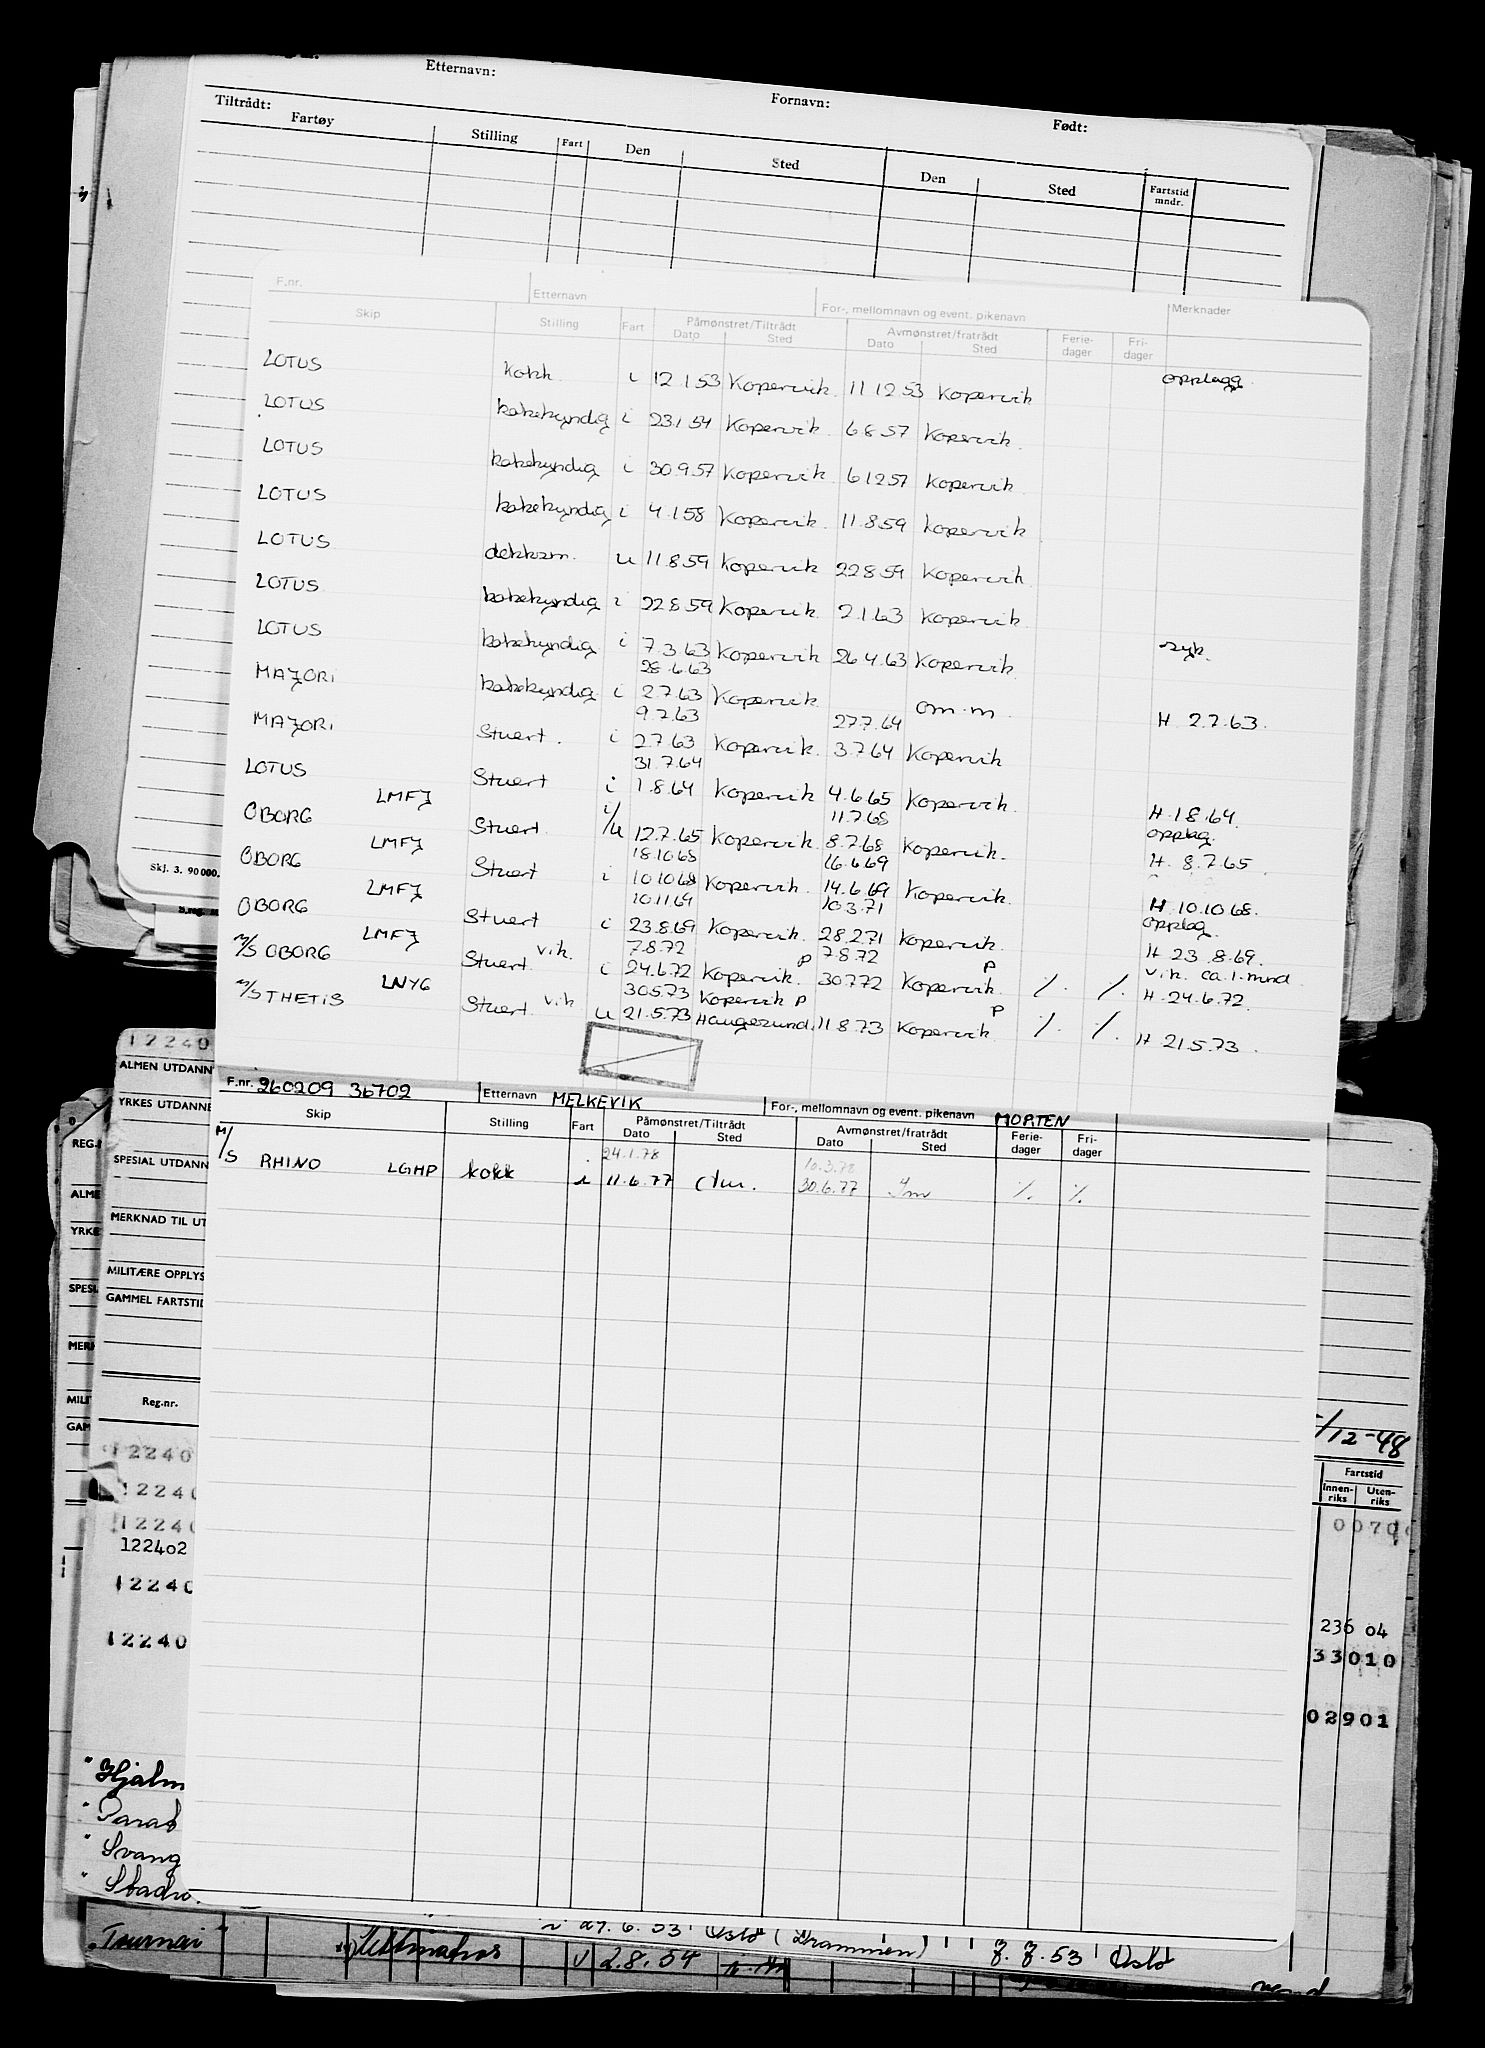 Etternavn: Fornavn: Født:
Tiltrådt:
Fartøy Stilling Fart Den Sted Den Sted Fartstid mndr.
F.nr. Etternavn For-, mellomnavn og event. pikenavn Merknader
Skip Stilling Fart Påmønstret/Tiltrådt Avmønstret/fratrådt Ferie- Fri-
Dato Sted Dato Sted dager dager
LOTUS kokk i 12.1.53 Kopervik 11 12 53 Kopervik opplagg.
LOTUS kokekyndig i 23.1.54 Kopervik 6 8 57 Kopervik
LOTUS kokekyndig i 30.9.57 Kopervik 6 12 57 Kopervik
LOTUS kokekyndig i 4.1.58 Kopervik 11.8.59 Kopervik
LOTUS dekksm. u 11.8.59 Kopervik 22 8 59 Kopervik
LOTUS kokekyndig i 22.8.59 Kopervik 2.1.63 Kopervik
LOTUS kokekyndig i 7.3.63 Kopervik 26 4.63 Kopervik syk.
28.6.63
MAJORI kokekyndig i 2.7.63 Kopervik om.m. H 2.7.63.
9.7.63 27.7.64
MAJORI Stuert. i 2.7.63 Kopervik 3.7.64 Kopervik
31.7.64
LOTUS Stuert i 1.8.64 Kopervik 4.6.65 Kopervik H 1.8.64.
11.7.68 opplag.
OBORG LMFJ Stuert. i/u 12.7.65 Kopervik 8.7.68 Kopervik. H. 8.7.65
18.10.68 16.6.69
OBORG LMFJ Stuert i 10.10.68 Kopervik 14.6.69 Kopervik. H 10.10.68.
10.11.69 10.3.71 opplag.
OBORG LMFJ Stuert i 23.8.69 Kopervik. 28.2.71 Kopervik H 23.8.69.
7.8.72 P 7.8.72 P vik. ca. 1. mnd
M/S OBORG LMFJ Stuert vik. i 24.6.72 Kopervik. 30.7.72 Kopervik ⁒ ⁒ H. 24.6.72.
30.5.73 Kopervik P P
M/S THETIS LNYG Stuert. vik u 21.5.73 Haugesund. 11.8.73 Kopervik ⁒ ⁒ H 21.5.73.
F.nr. 260209 36702 Etternavn MELKEVIK For-, mellomnavn og event. pikenavn MORTEN
Skip Stilling Fart Påmønstret/Tiltrådt Avmønstret/fratrådt Ferie- Fri-
Dato Sted Dato Sted dager dager
24.1.78 10.3.78
M/S RHINO LGHP kokk i 11.6.77 30.6.77 ⁒ ⁒
Skj. 3. 90 000.
12240
ALMEN UTDANN
YRKES UTDANNE
REG.
SPESIAL UTDANN
ALME
MERKNAD TIL UT
YRKE
MILITÆRE OPPLYS
SPESI
GAMMEL FARTSTI
MERK
Reg.nr.
MILIT
GAM
12240
12240
12240
122402
12240
12240
/12-48
Fartstid
Innen-riks Uten-riks
0070
236 04
33010
02901
" Hjalm
" Parat
" Svang
" Stadio.
27.6.53 Oslo (Drammen) 7.7.53 Oslo
"Tournai" Lettmatros u 2.8.54